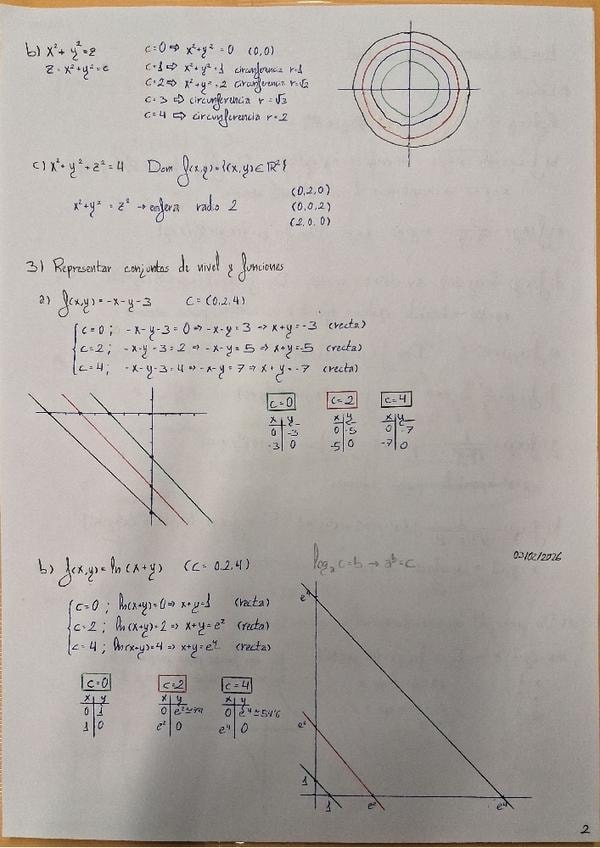 b) x² + y² = z
z = x² + y² = c
c = 0 ⇒ x² + y² = 0 (0,0)
c = 1 ⇒ x² + y² = 1 circunferencia r=1
c = 2 ⇒ x² + y² = 2 circunferencia r=√2
c = 3 ⇒ circunferencia r = √3
c = 4 ⇒ circunferencia r = 2
c) x² + y² + z² = 4 Dom f(x,y) = {(x,y) ∈ ℝ²}
x² + y² = z² → esfera radio 2
(0,2,0)
(0,0,2)
(2,0,0)
3) Representar conjuntos de nivel y funciones
a) f(x,y) = -x-y-3 C = (0,2,4)
c = 0 ; -x-y-3 = 0 ⇒ -x-y = 3 ⇒ x+y = -3 (recta)
c = 2 ; -x-y-3 = 2 ⇒ -x-y = 5 ⇒ x+y = -5 (recta)
c = 4 ; -x-y-3 = 4 ⇒ -x-y = 7 ⇒ x+y = -7 (recta)
c=0 c=2 c=4
x y x y x y
0 -3 0 -5 0 -7
-3 0 -5 0 -7 0
b) f(x,y) = ln(x+y) (C = 0,2,4)
log₂ c = b → aᵇ = c
03/02/2026
c = 0 ; ln(x+y) = 0 ⇒ x+y = 1 (recta)
c = 2 ; ln(x+y) = 2 ⇒ x+y = e² (recta)
c = 4 ; ln(x+y) = 4 ⇒ x+y = e⁴ (recta)
c=0 c=2 c=4
x y x y x y
0 1 0 e² 0 e⁴ ≈ 54'6
1 0 e² 0 e⁴ 0
e⁴
e²
1
1 e² e⁴
2